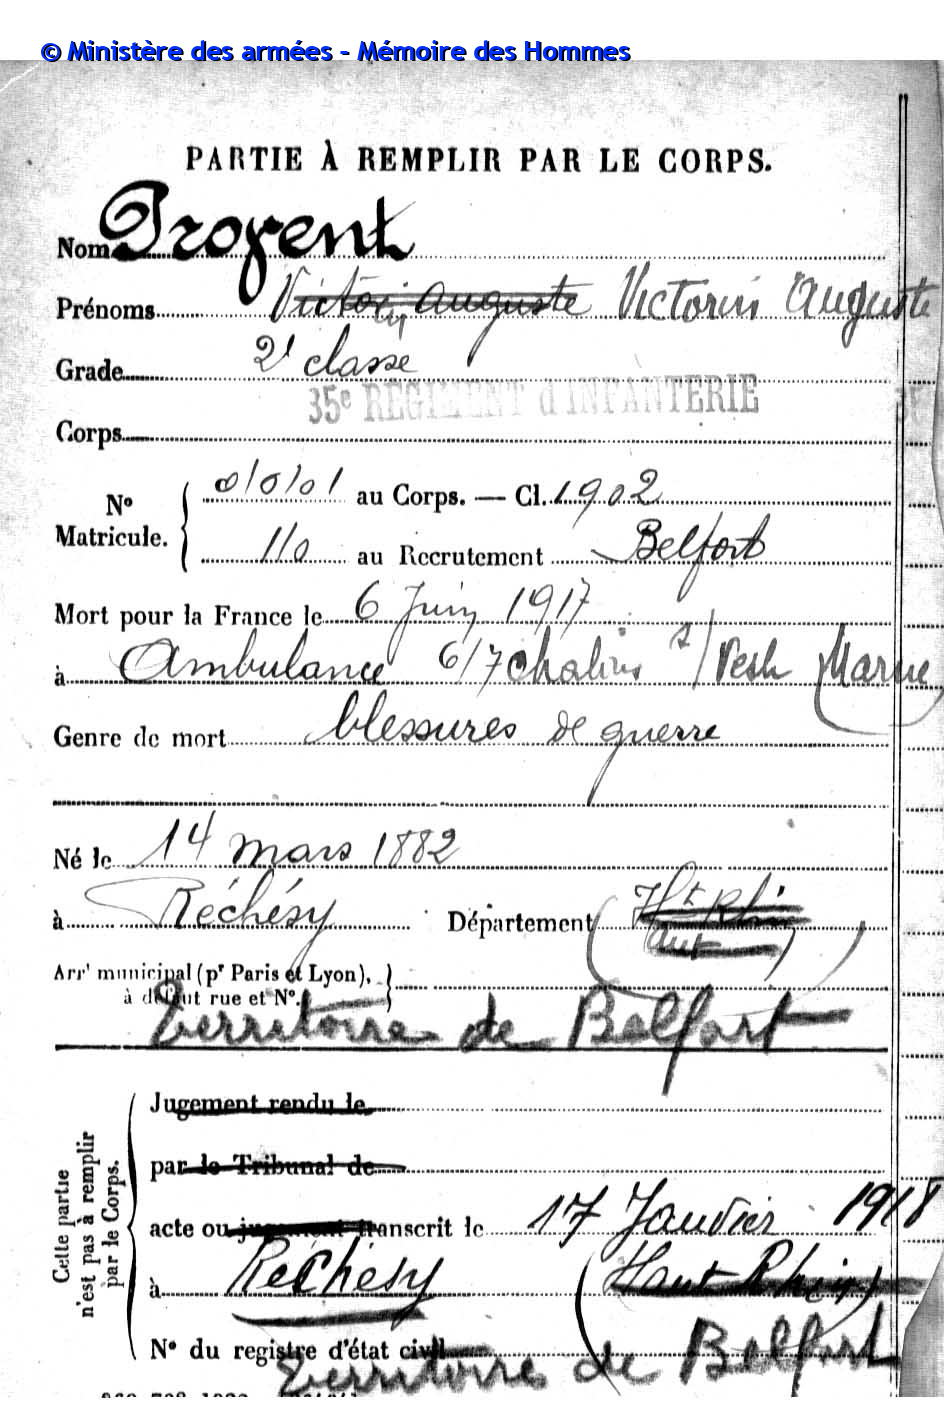 © Ministère des armées - Mémoire des Hommes
PARTIE À REMPLIR PAR LE CORPS.
Nom Prozent
Prénoms Victorin Auguste Victorin Auguste
Grade 2e classe
35e RÉGIMENT d'INFANTERIE
Corps
No Matricule. 0/0/01 au Corps. — Cl. 1902
110 au Recrutement Belfort
Mort pour la France le 6 Juin 1917
à Ambulance 6/7 Chalons s/ Vesle (Marne)
Genre de mort blessures de guerre
Né le 14 mars 1882
à Réchésy Département (Ht Rhin
Arrt municipal (pr Paris et Lyon),
à défaut rue et No.
Territoire de Belfort
Cette partie n'est pas à remplir par le Corps.
Jugement rendu le
par le Tribunal de
acte ou jugement transcrit le 17 Janvier 1918
à Réchésy (Haut Rhin)
No du registre d'état civil
Territoire de Belfort